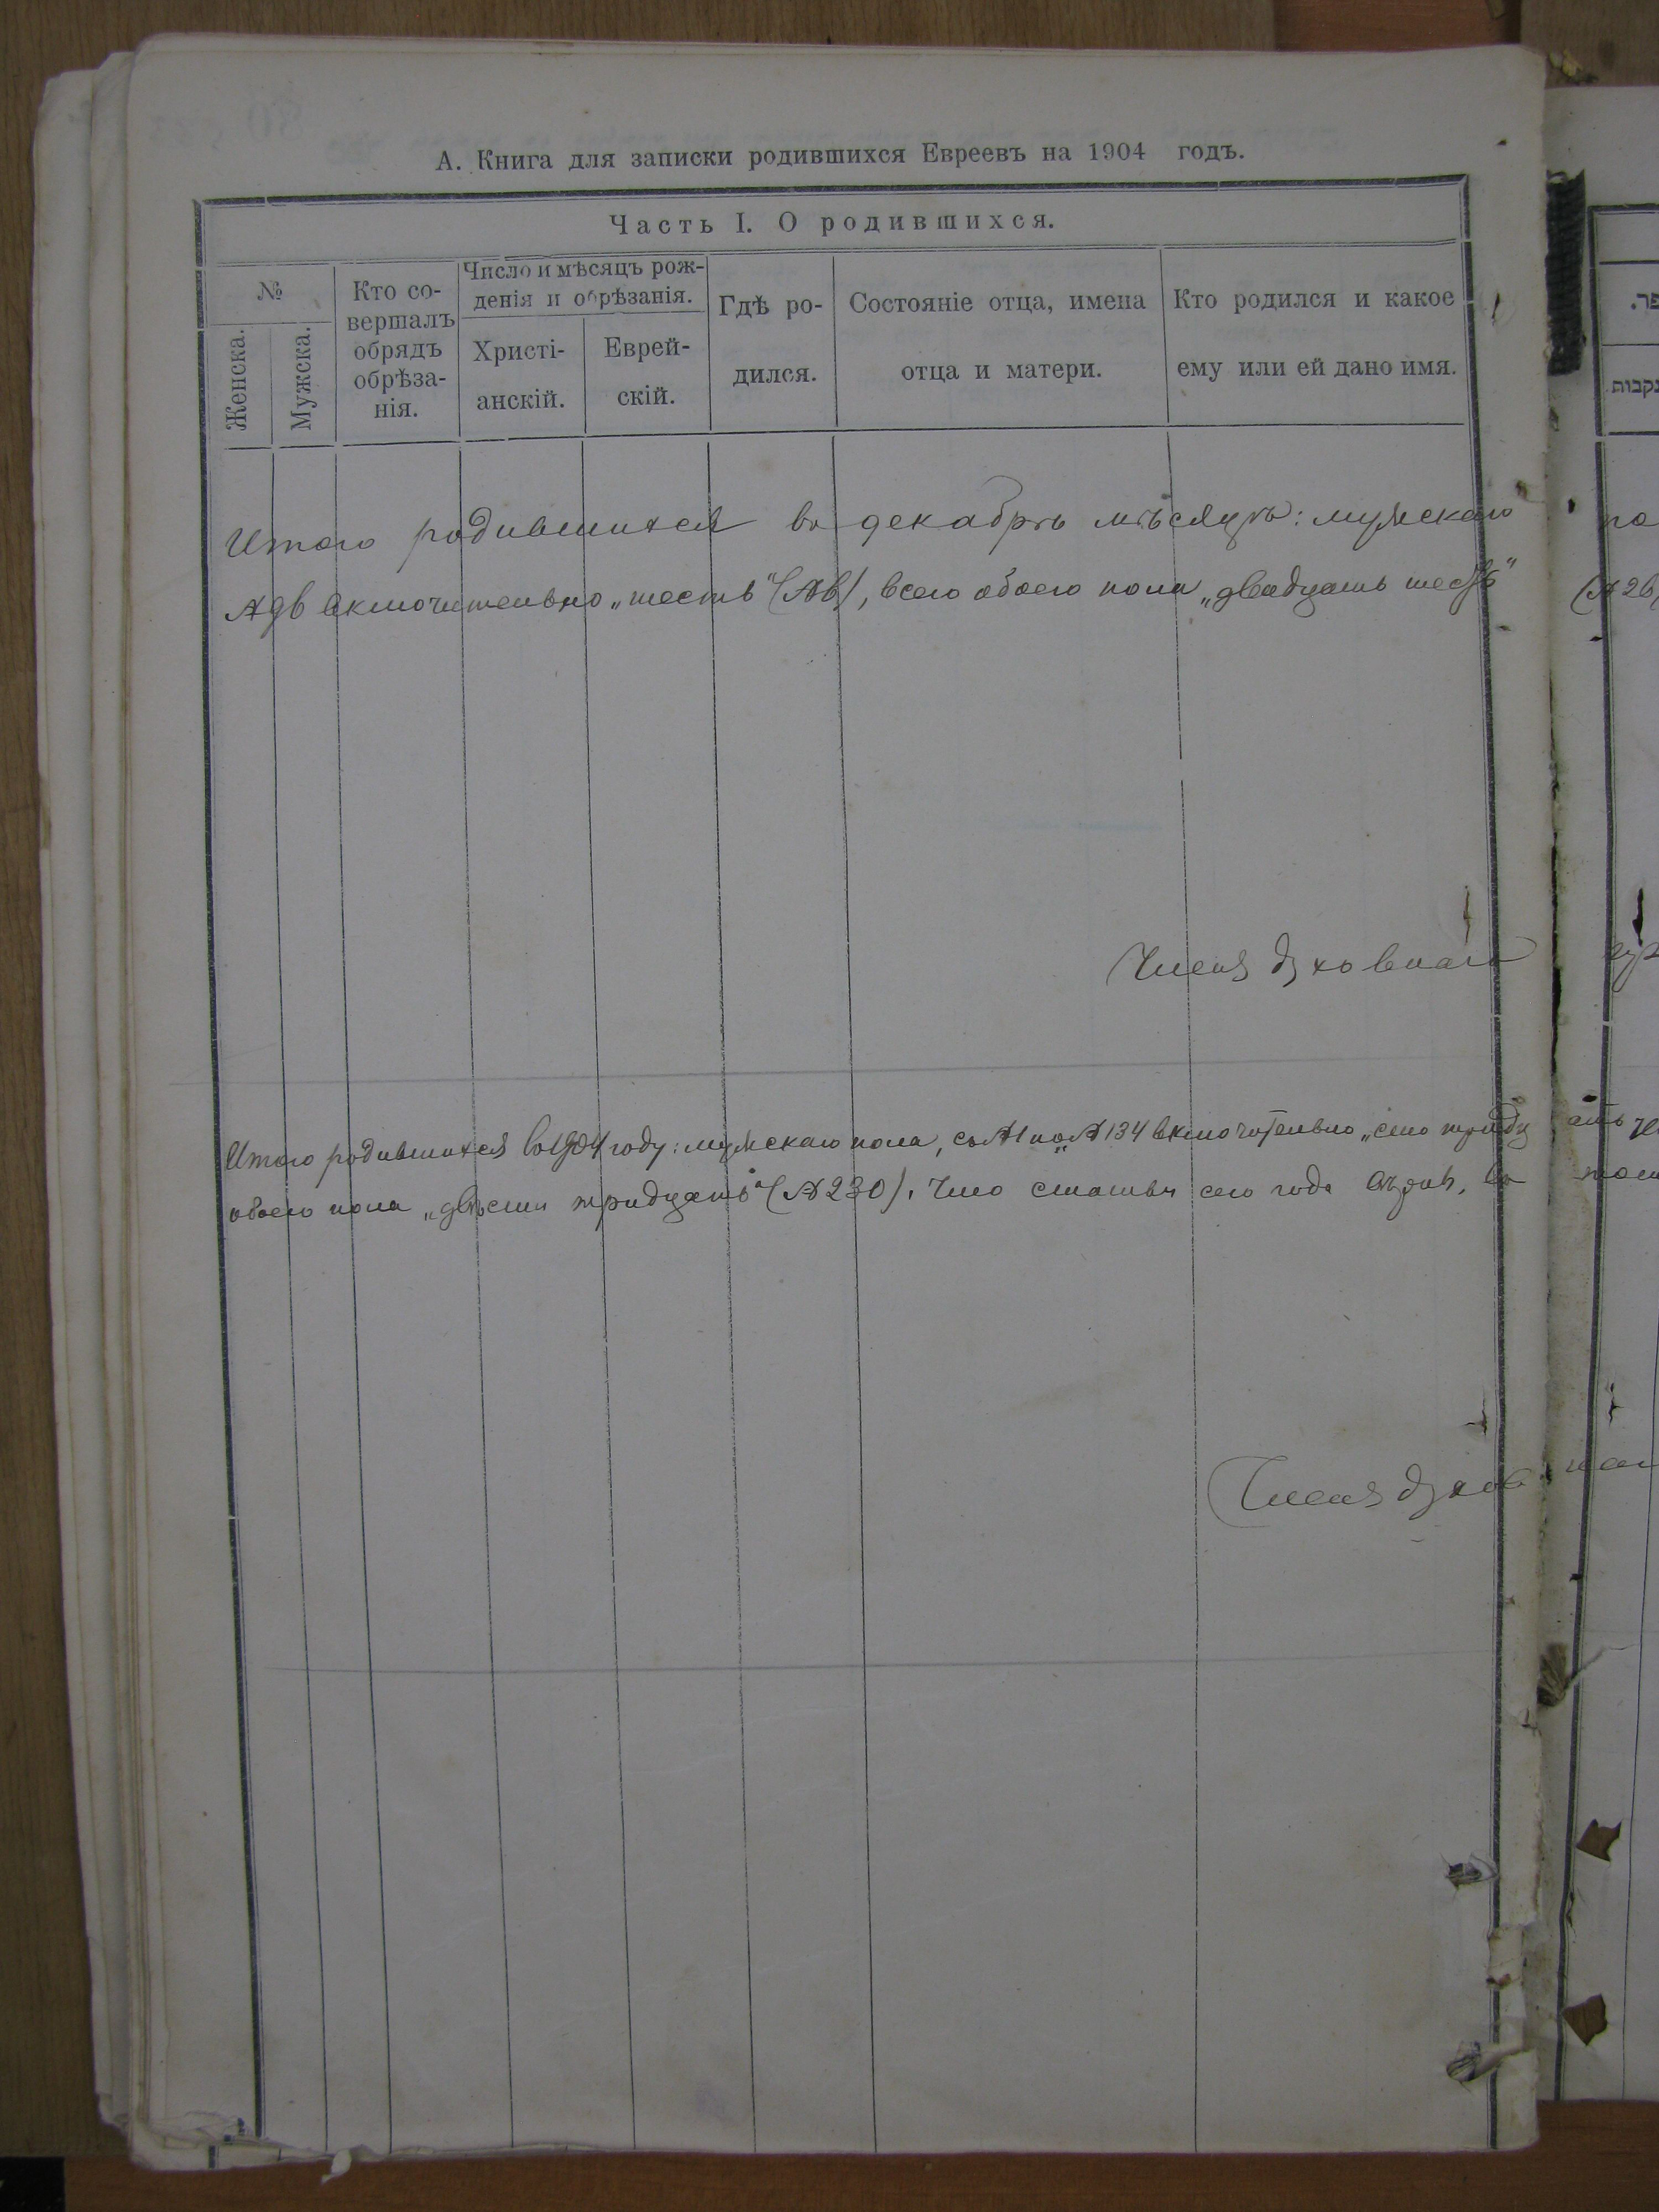 А. Книга для записки родившихся Евреевъ на 1904 годъ.
Часть I. О родившихся.
№
Женска.
Мужска.
Кто со-
вершалъ
обрядъ
обрѣза-
нія.
Число и мѣсяцъ рож-
денія и обрѣзанія.
Христі-
анскій.
Еврей-
скій.
Гдѣ ро-
дился.
Состояніе отца, имена
отца и матери.
Кто родился и какое
ему или ей дано имя.
Итого родившихся въ декабрѣ мѣсяцѣ: мужскаго по
включительно „шесть" (№6), всего обоего пола „двадцать шесть" (№26)
Членъ духовнаго
Итого родившихся въ 1904 году: мужскаго пола, съ №1 по №134 включительно „сто тридцать
обоего пола „двѣсти тридцать" (№230). Что статьи сего года вѣрны, въ том
Членъ духовнаг
פר.
נקבות